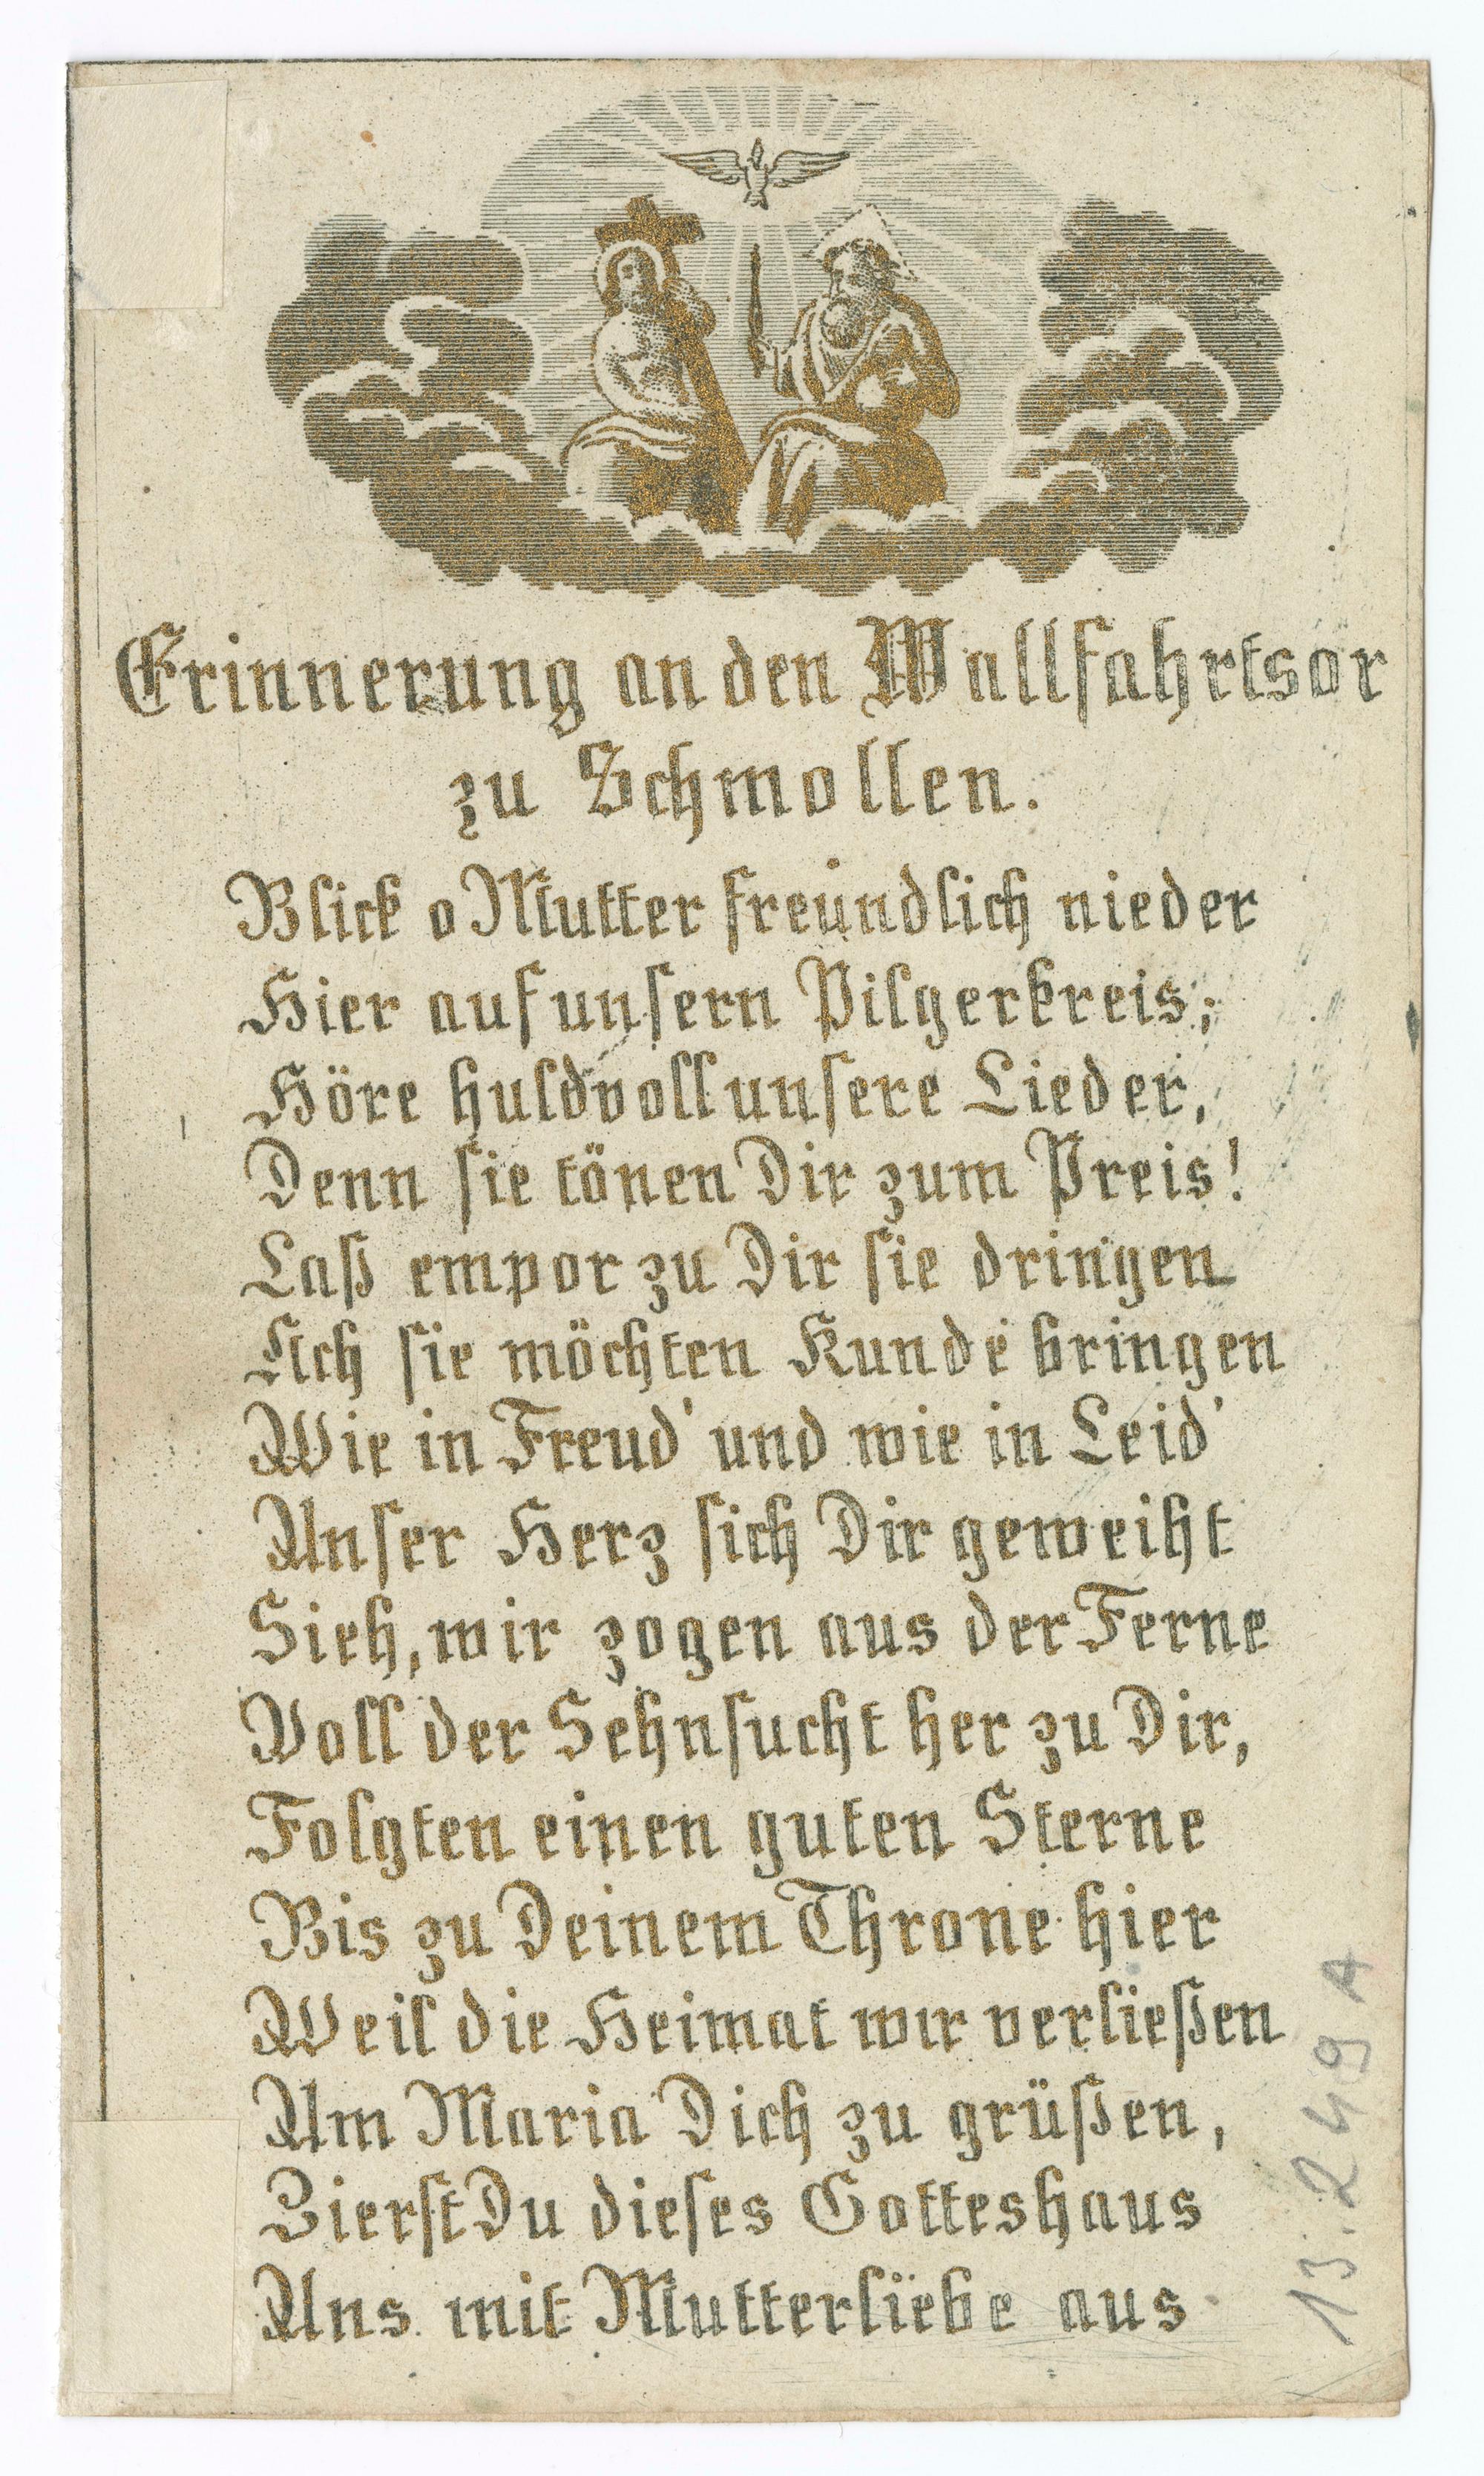 Erinnerung an den Wallfahrtsor
zu Schmollen.
Blick o Mutter freundlich nieder
Hier auf unsern Pilgerkreis;
Höre huldvoll unsere Lieder,
Denn sie tönen Dir zum Preis!
Laß empor zu Dir sie dringen
Ach sie möchten Kunde bringen
Wie in Freud' und wie in Leid'
Unser Herz sich Dir geweiht
Sieh, wir zogen aus der Ferne
Voll der Sehnsucht her zu Dir,
Folgten einen guten Sterne
Bis zu Deinem Throne hier
Weil die Heimat wir verließen
Um Maria Dich zu grüßen,
Zierst Du dieses Gotteshaus
Uns mit Mutterliebe aus
13.249A